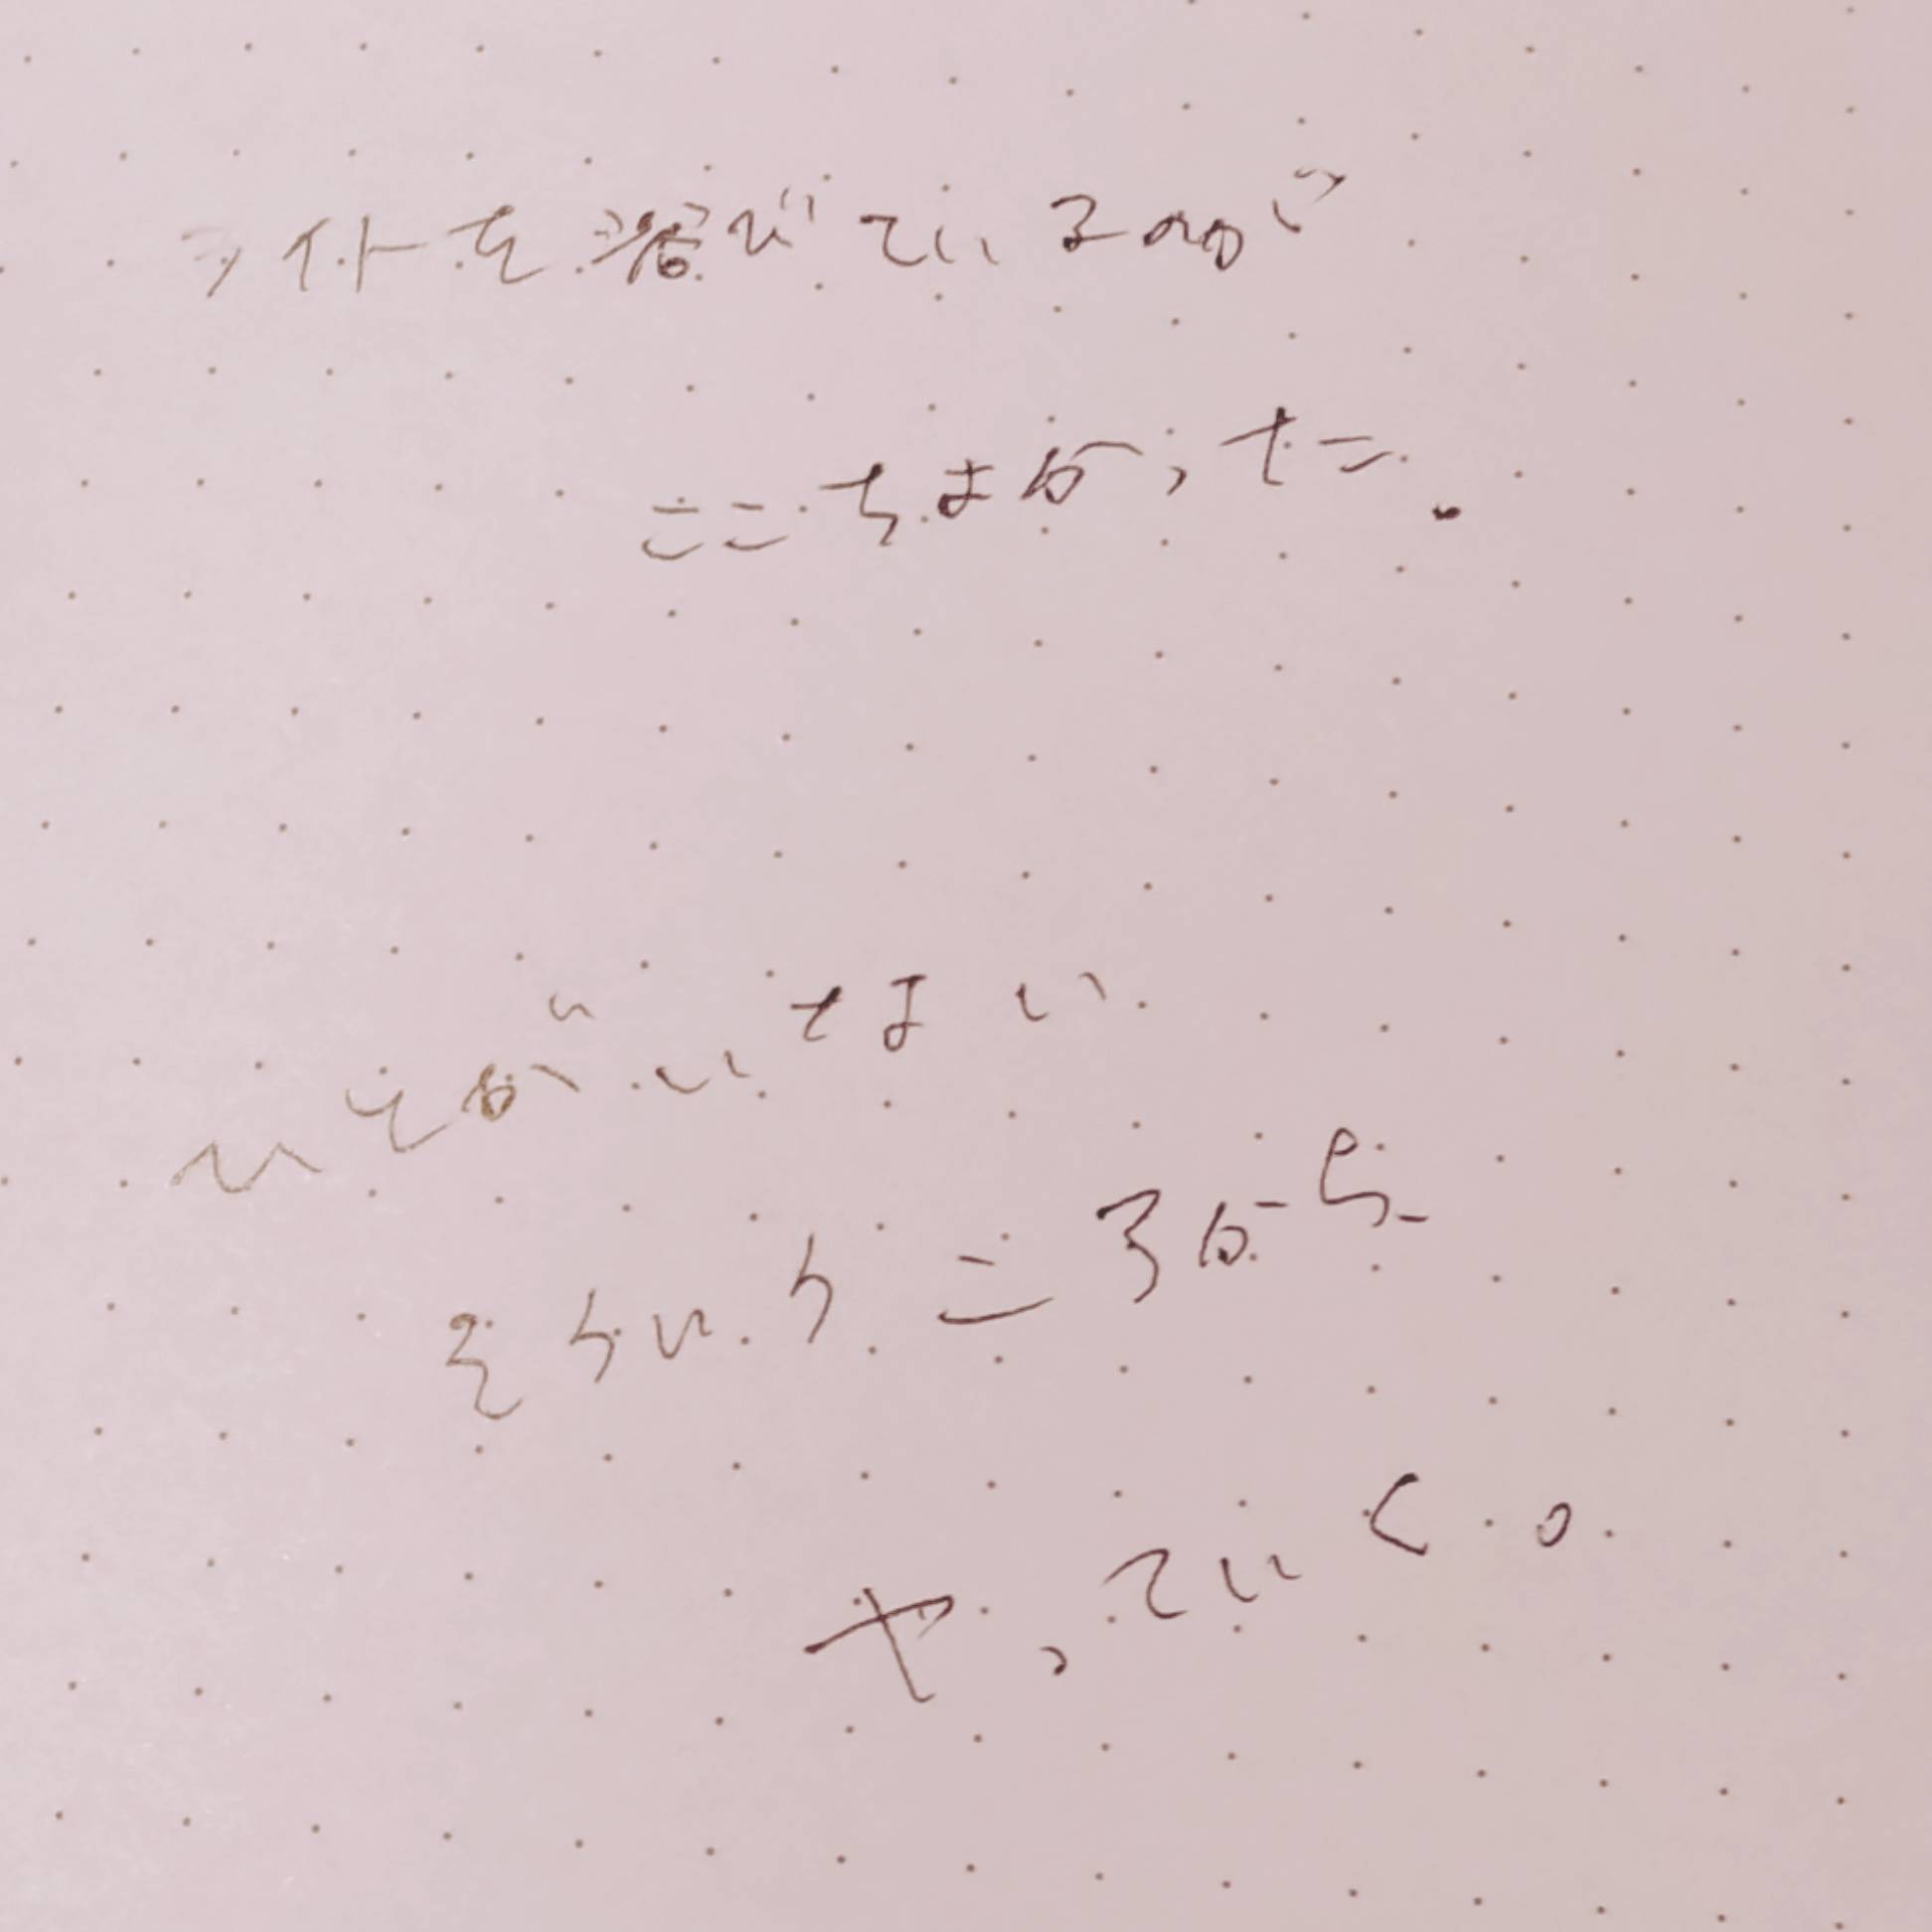 ライトを浴びているのが
ここちよかった。
いそがいせない
そういうころから
やっていく。